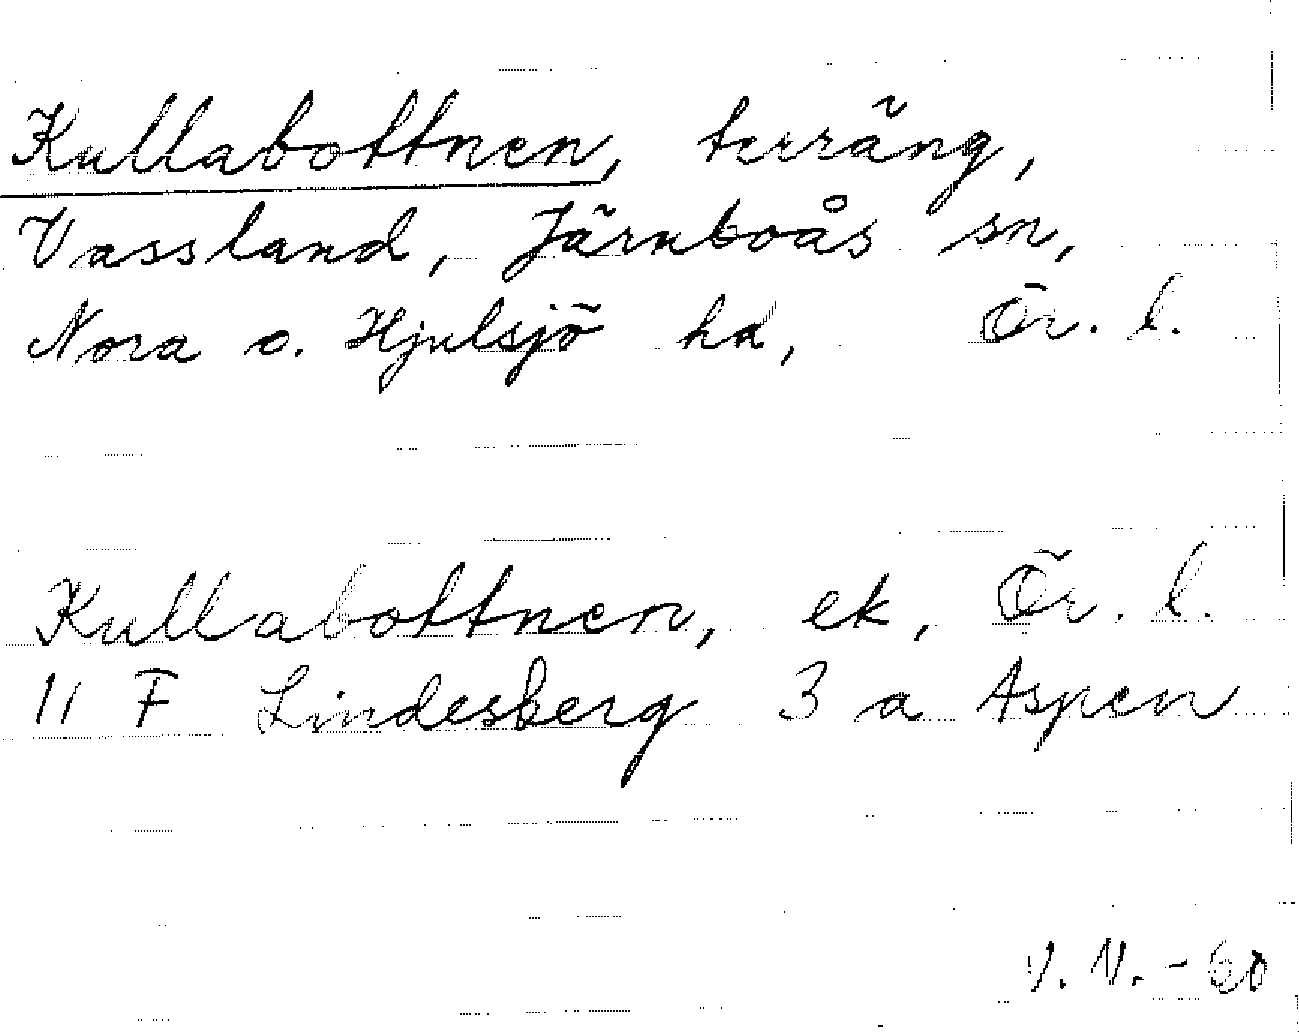 Kullabottnen, terräng,
Vassland, Järnboås sn,
Nora o. Hjulsjö hd, Ör. l.
Kullabottnen, ek, Ör. l.
11 F Lindesberg 3 a Aspen
V. V. - 60